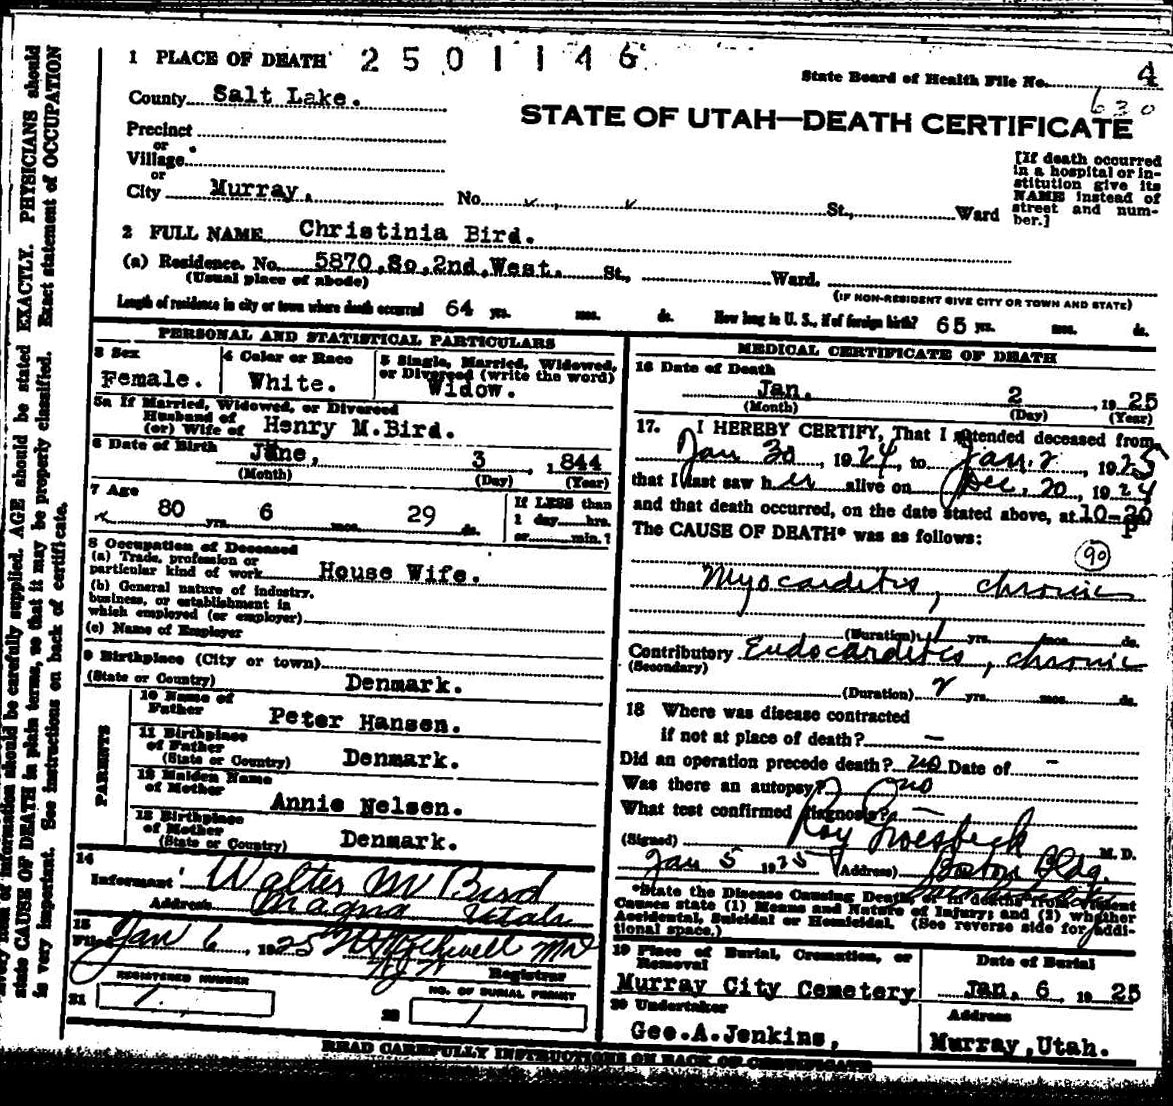 1 PLACE OF DEATH 2501146
State Board of Health File No. 4
630
County Salt Lake.
STATE OF UTAH—DEATH CERTIFICATE
Precinct
or
Village
or
City Murray. No. St., Ward
[If death occurred
in a hospital or in-
stitution give its
NAME instead of
street and num-
ber.]
2 FULL NAME Christinia Bird.
(a) Residence. No. 5870,So,2nd,West. St., Ward.
(Usual place of abode)
(IF NON-RESIDENT GIVE CITY OR TOWN AND STATE)
Length of residence in city or town where death occurred 64 yrs. mos. ds. How long in U. S., if of foreign birth? 65 yrs. mos. ds.
PERSONAL AND STATISTICAL PARTICULARS
3 Sex
Female.
4 Color or Race
White.
5 Single, Married, Widowed,
or Divorced (write the word)
Widow.
5a If Married, Widowed, or Divorced
Husband of
(or) Wife of Henry M.Bird.
6 Date of Birth June, 3, 1844
(Month) (Day) (Year)
7 Age
80 yrs. 6 mos. 29 ds.
If LESS than
1 day hrs.
or min.?
8 Occupation of Deceased
(a) Trade, profession or
particular kind of work House Wife.
(b) General nature of industry,
business, or establishment in
which employed (or employer)
(c) Name of Employer
9 Birthplace (City or town)
(State or Country) Denmark.
PARENTS
10 Name of
Father Peter Hansen.
11 Birthplace
of Father
(State or Country) Denmark.
12 Maiden Name
of Mother Annie Nelsen.
13 Birthplace
of Mother
(State or Country) Denmark.
14
Informant Walter M Bird
Address Magna Utah
15
Filed Jan 6, 1925
Registrar
REGISTERED NUMBER
21 1
NO. OF BURIAL PERMIT
22 1
MEDICAL CERTIFICATE OF DEATH
16 Date of Death
Jan. 2, 1925
(Month) (Day) (Year)
17. I HEREBY CERTIFY, That I attended deceased from
Jan 30, 1924, to Jan. 2, 1925
that I last saw her alive on Dec. 20, 1924
and that death occurred, on the date stated above, at 10-30
P
The CAUSE OF DEATH* was as follows:
90
Myocarditis, chronic
(Duration) 1 yrs. mos. ds.
Contributory Endocarditis, chronic
(Secondary)
(Duration) 2 yrs. mos. ds.
18 Where was disease contracted
if not at place of death? —
Did an operation precede death? no Date of -
Was there an autopsy? no
What test confirmed diagnosis? —
(Signed) Roy Groesbeck M. D.
Jan 5 1925 (Address) Boston Bldg.
*State the Disease Causing Death, or in deaths from Violent
Causes state (1) Means and Nature of Injury; and (2) whether
Accidental, Suicidal or Homicidal. (See reverse side for addi-
tional space.)
19 Place of Burial, Cremation, or
Removal
Murray City Cemetery
Date of Burial
Jan. 6, 1925
20 Undertaker
Geo.A.Jenkins,
Address
Murray,Utah.
READ CAREFULLY INSTRUCTIONS ON BACK OF CERTIFICATE
information should be carefully supplied. AGE should be stated EXACTLY. PHYSICIANS should
state CAUSE OF DEATH in plain terms, so that it may be properly classified. Exact statement of OCCUPATION
is very important. See instructions on back of certificate.